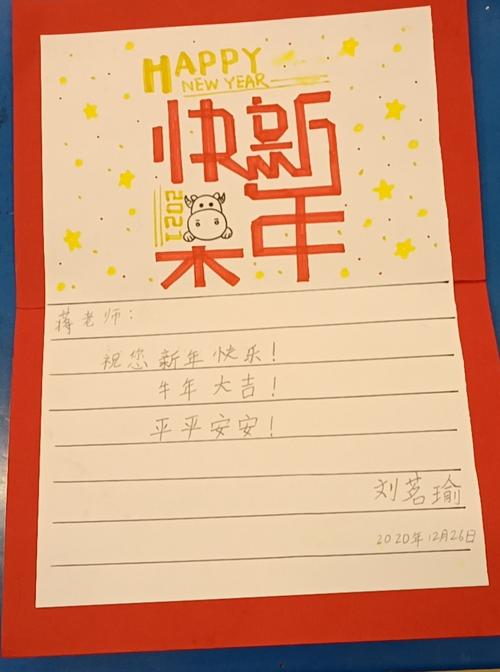 HAPPY
NEW YEAR
新年
快乐
2021
蒋老师：
祝您新年快乐！
牛年大吉！
平平安安！
刘茗瑜
2020年12月26日